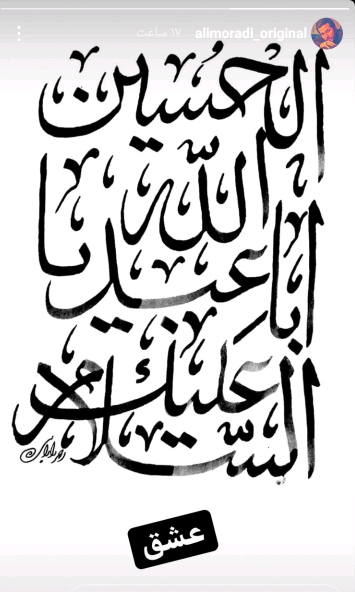 alimoradi_original ۱۷ ساعت
السّلام علیك
یا اباعبد
اللّه
الحسین
عشق